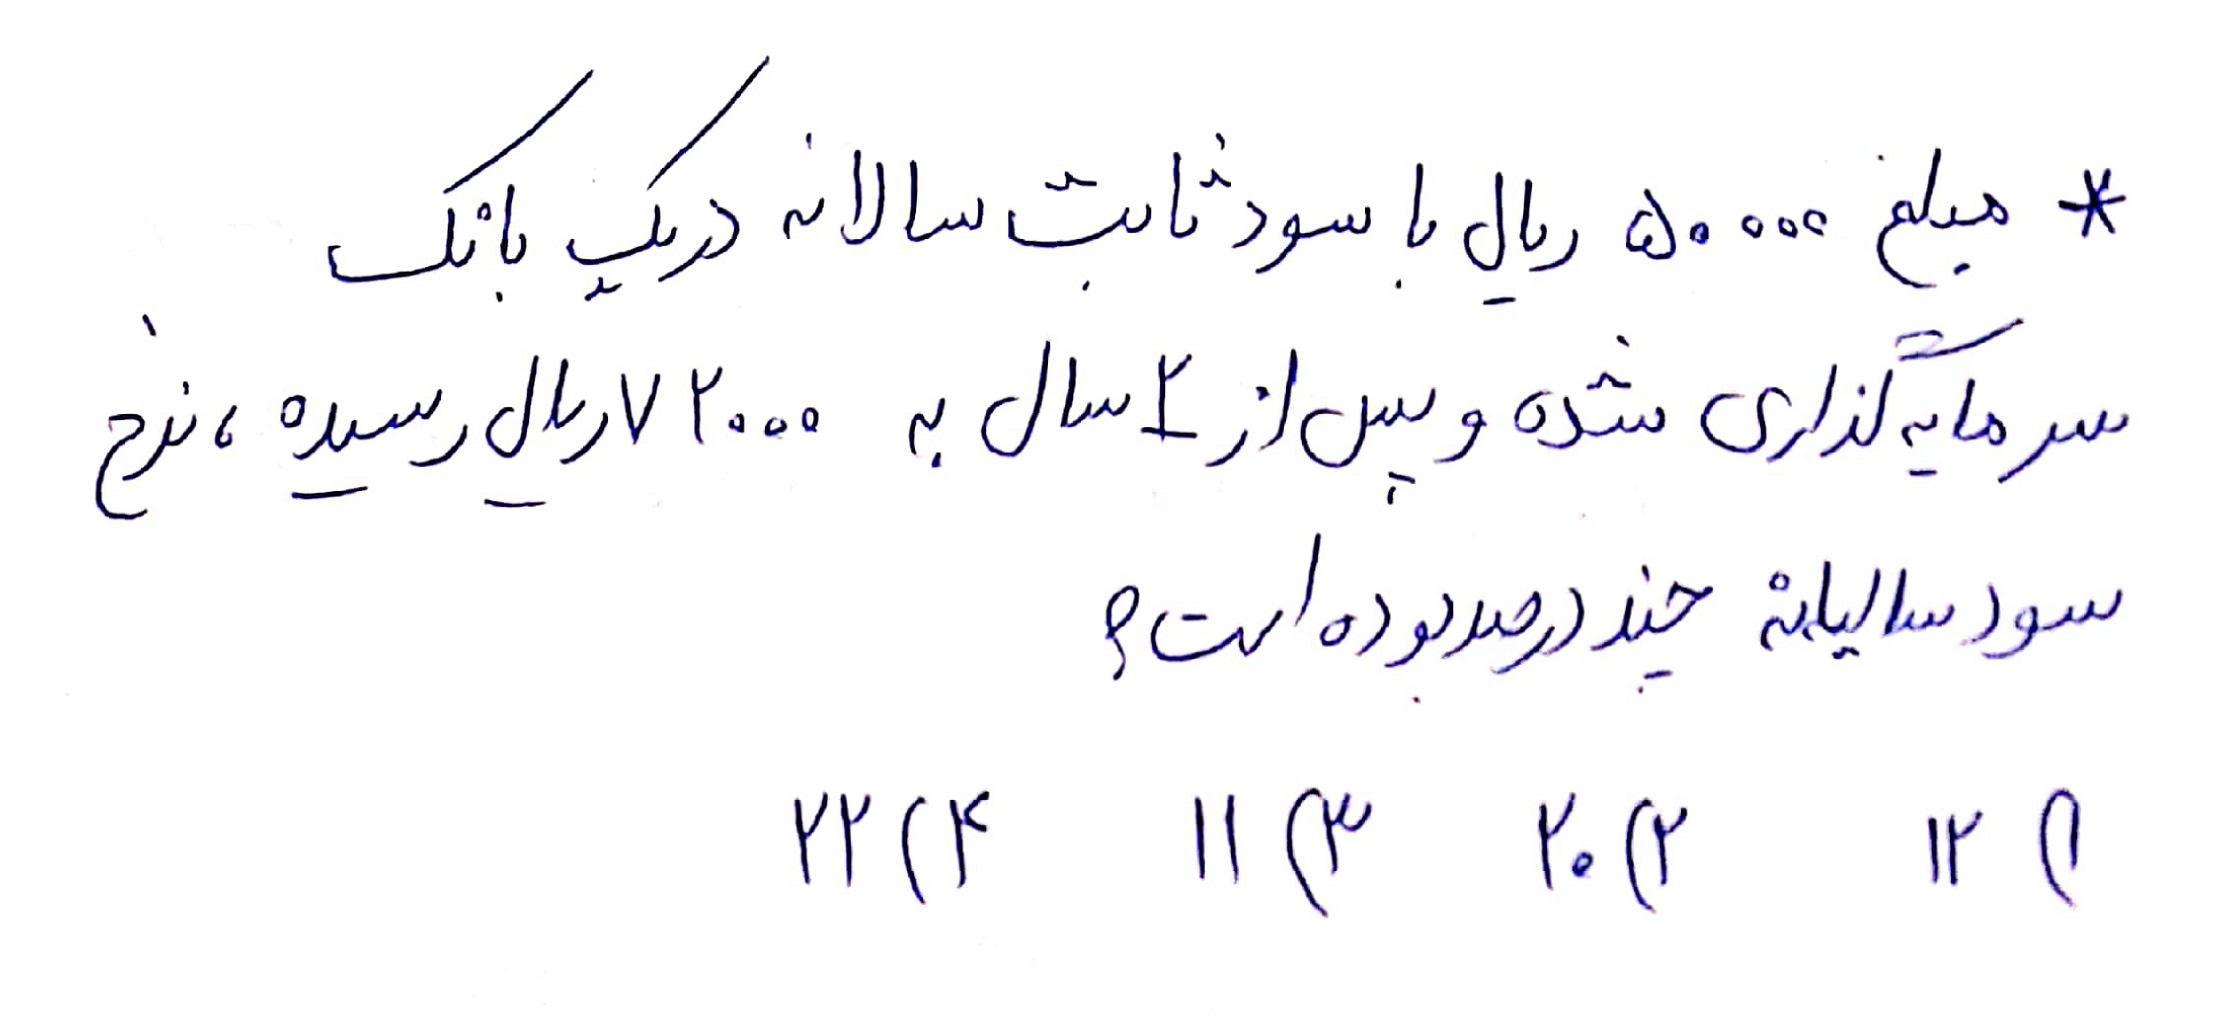 * مبلغ ۵۰۰۰۰ ریال با سود ثابت سالانه در یک بانک
سرمایه گذاری شده و پس از ۲ سال به ۷۲۰۰۰ ریال رسیده ، نرخ
سود سالیانه چند درصد بوده است؟
۱) ۱۲ ۲) ۲۰ ۳) ۱۱ ۴) ۲۲